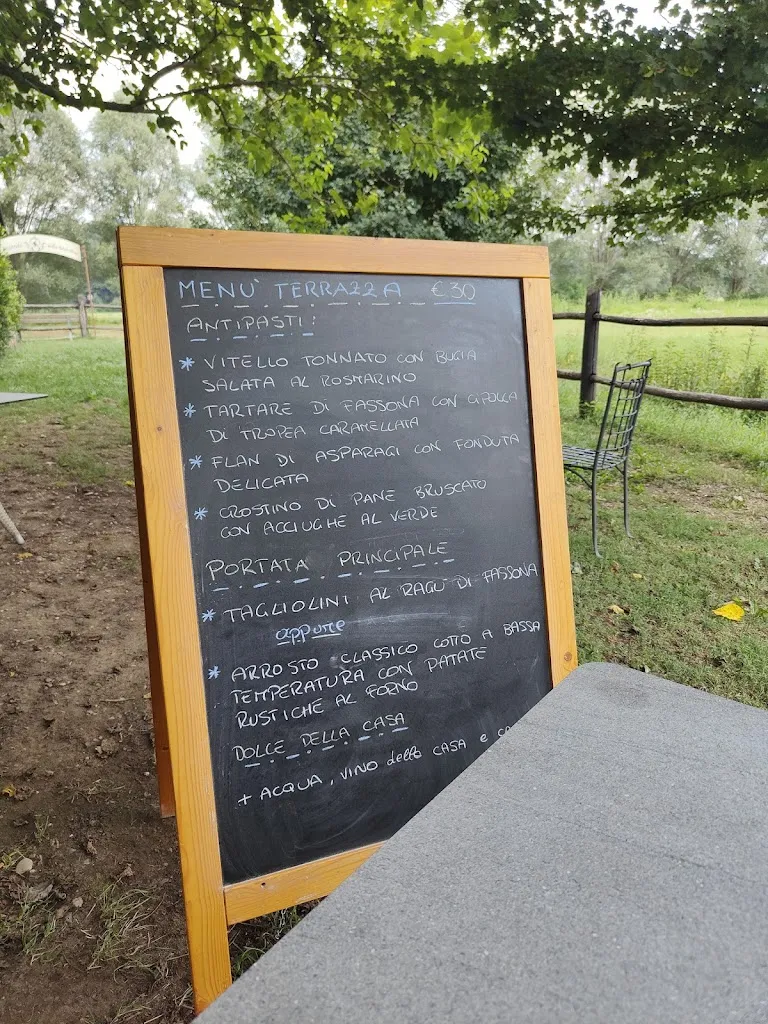 MENU' TERRAZZA €30
ANTIPASTI:
* VITELLO TONNATO CON BUGIA
SALATA AL ROSMARINO
* TARTARE DI FASSONA CON CIPOLLA
DI TROPEA CARAMELLATA
* FLAN DI ASPARAGI CON FONDUTA
DELICATA
* CROSTINO DI PANE BRUSCATO
CON ACCIUGHE AL VERDE
PORTATA PRINCIPALE
* TAGLIOLINI AL RAGU' DI FASSONA
oppure
* ARROSTO CLASSICO COTTO A BASSA
TEMPERATURA CON PATATE
RUSTICHE AL FORNO
DOLCE DELLA CASA
+ ACQUA, VINO della CASA e